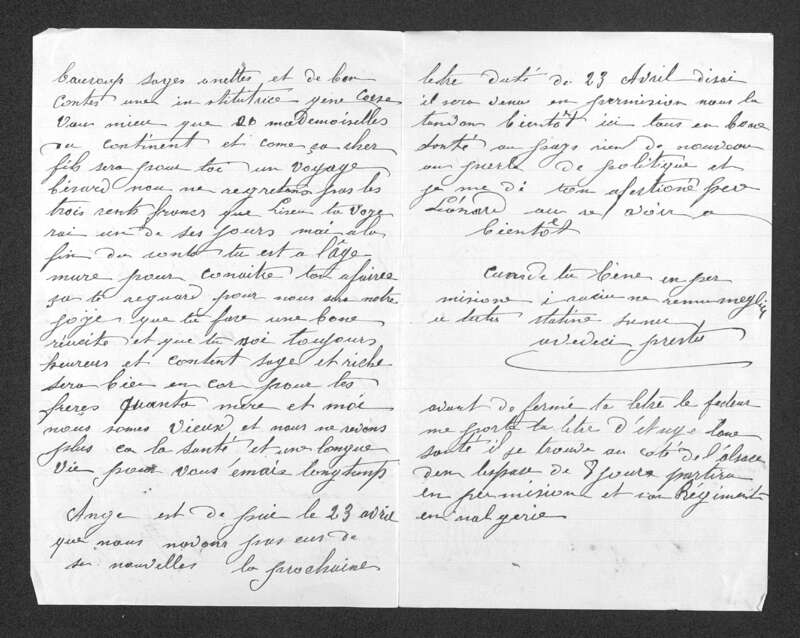 baucoup sages onettes et de bon
contes une institutrice gene Corse
Vau mieu que 20 maDemoiselles
du continent et come ça cher
fils sera pour toi un voyage
bisard nou ne regretons pas les
trois sents francs que Lisen ta voye
rai un de ses jours mai a la
fin du conte tu est a l'âge
mure pour conaitre ton afaires
sa te reguard pour nous sera notre
joÿe que tu fase une bone
réucite et que tu soi toujours
heureus et content sage et riche
sera bie en cor pour tes
freres Quanto mere et moi
nous somes vieux et nous ne revons
plus ca la santé et une longue
vie pour vous émais longtemps
Ange est de puie le 23 avril
que nous navons pas eus de
se nouvelles la prochaine
letre daté du 23 Avril disai
il sera venu en permision nous la
tandon bientot ici tous en bone
santé au pays rien de nouveau
au perte de politique et
je me di ton afectioné pere
Léonard au re voir a
bientôt
cuande tu bène en per
misione i
u tutu statine sunu
avedeci prestu
avant de fermé ta letre le facteur
me porte la letre d'étuge bone
santé il se trouve au coté de l'alsace
den lespace de 8 jours partira
en permision et son Régiments
en nalgerie